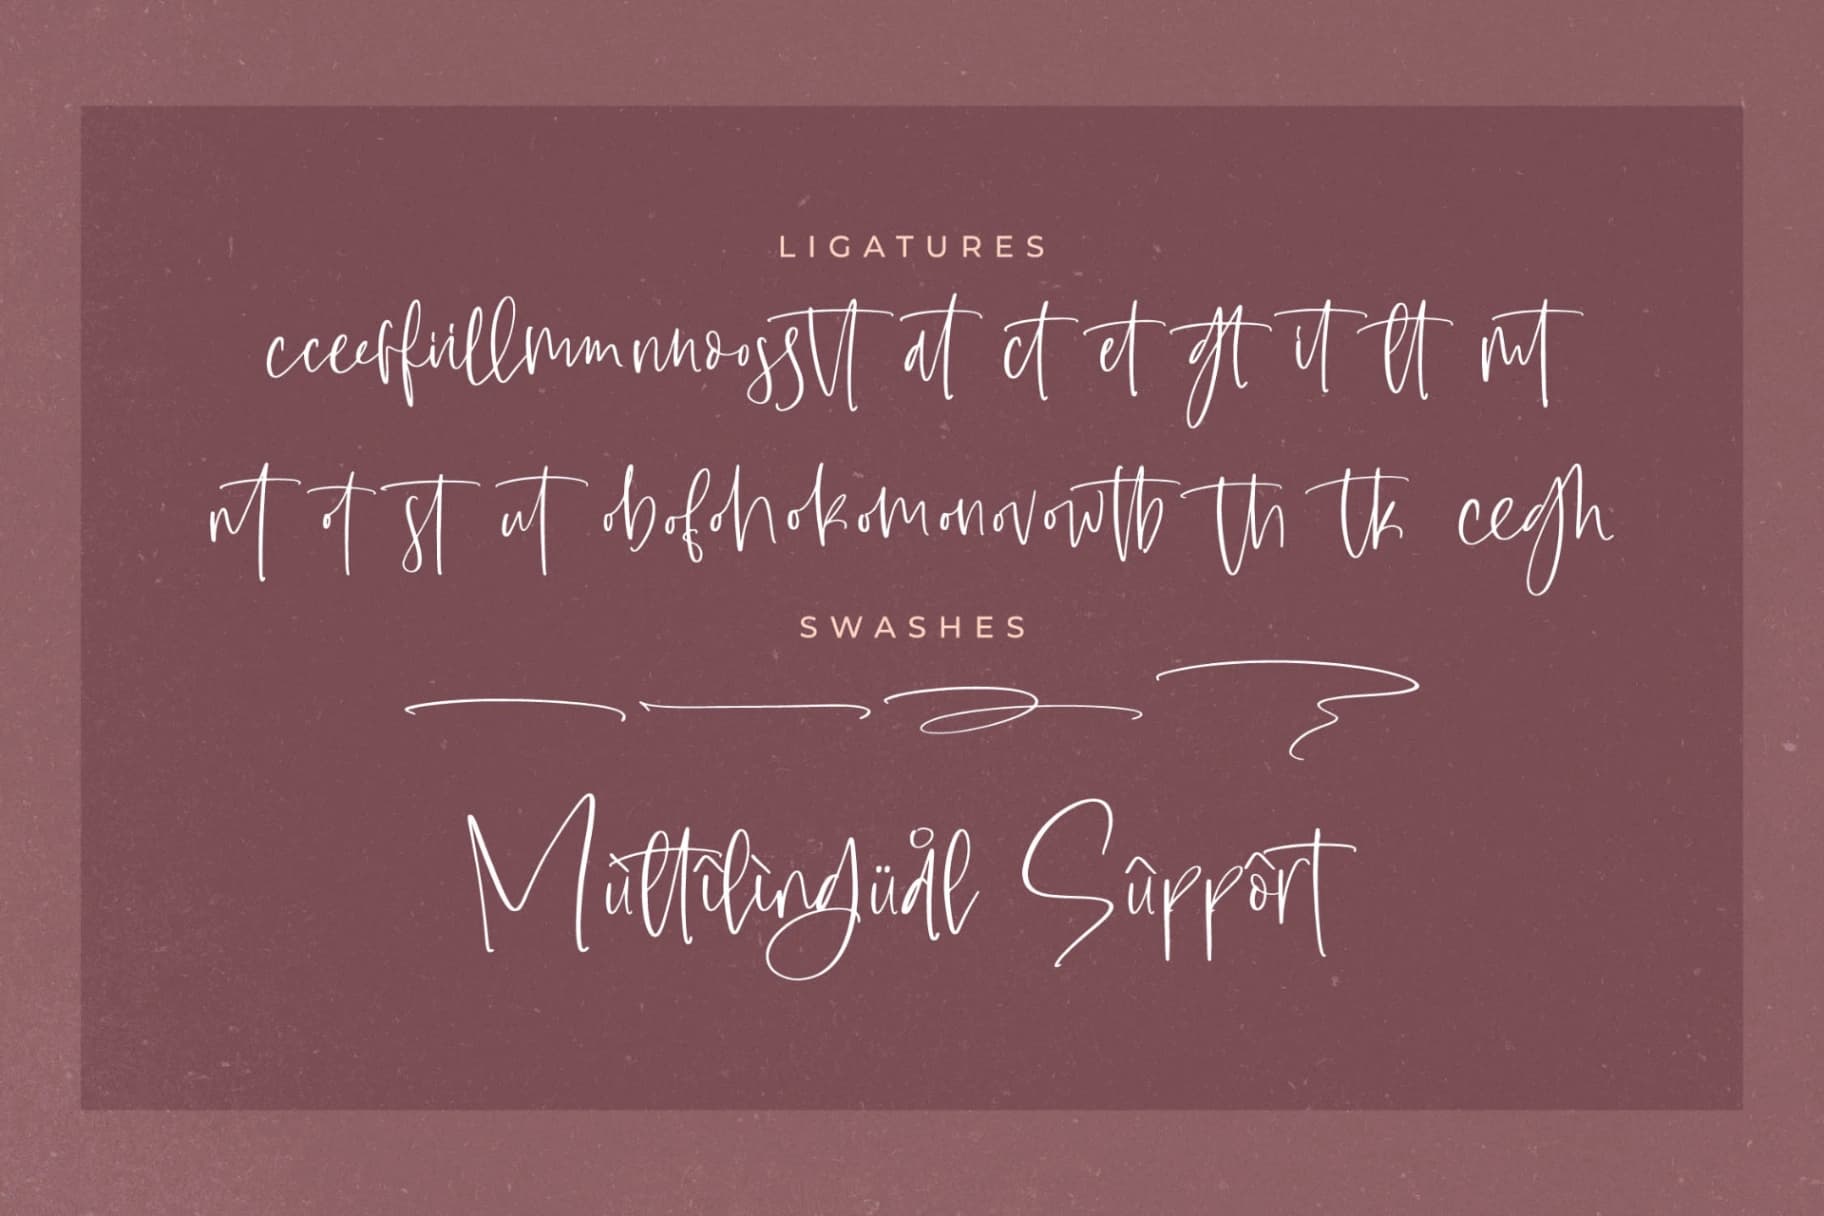 LIGATURES
cceeffiillmmnnoosstt at ct et gt it lt mt
nt ot st ut obofohokomonovowttb th tk cegh
SWASHES
Mùltîlìngüål Sûppôrt